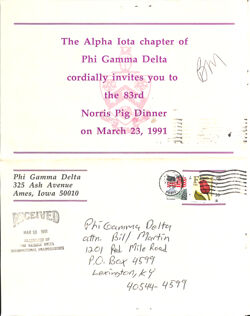 The Alpha Iota chapter of
Phi Gamma Delta
cordially invites you to
the 83rd
Norris Pig Dinner
on March 23, 1991
BM
Phi Gamma Delta
325 Ash Avenue
Ames, Iowa 50010
RECEIVED
Phi Gamma Delta
attn. Bill Martin
1201 Red Mile Road
P.O. Box 4599
Lexington, KY
40544-4599